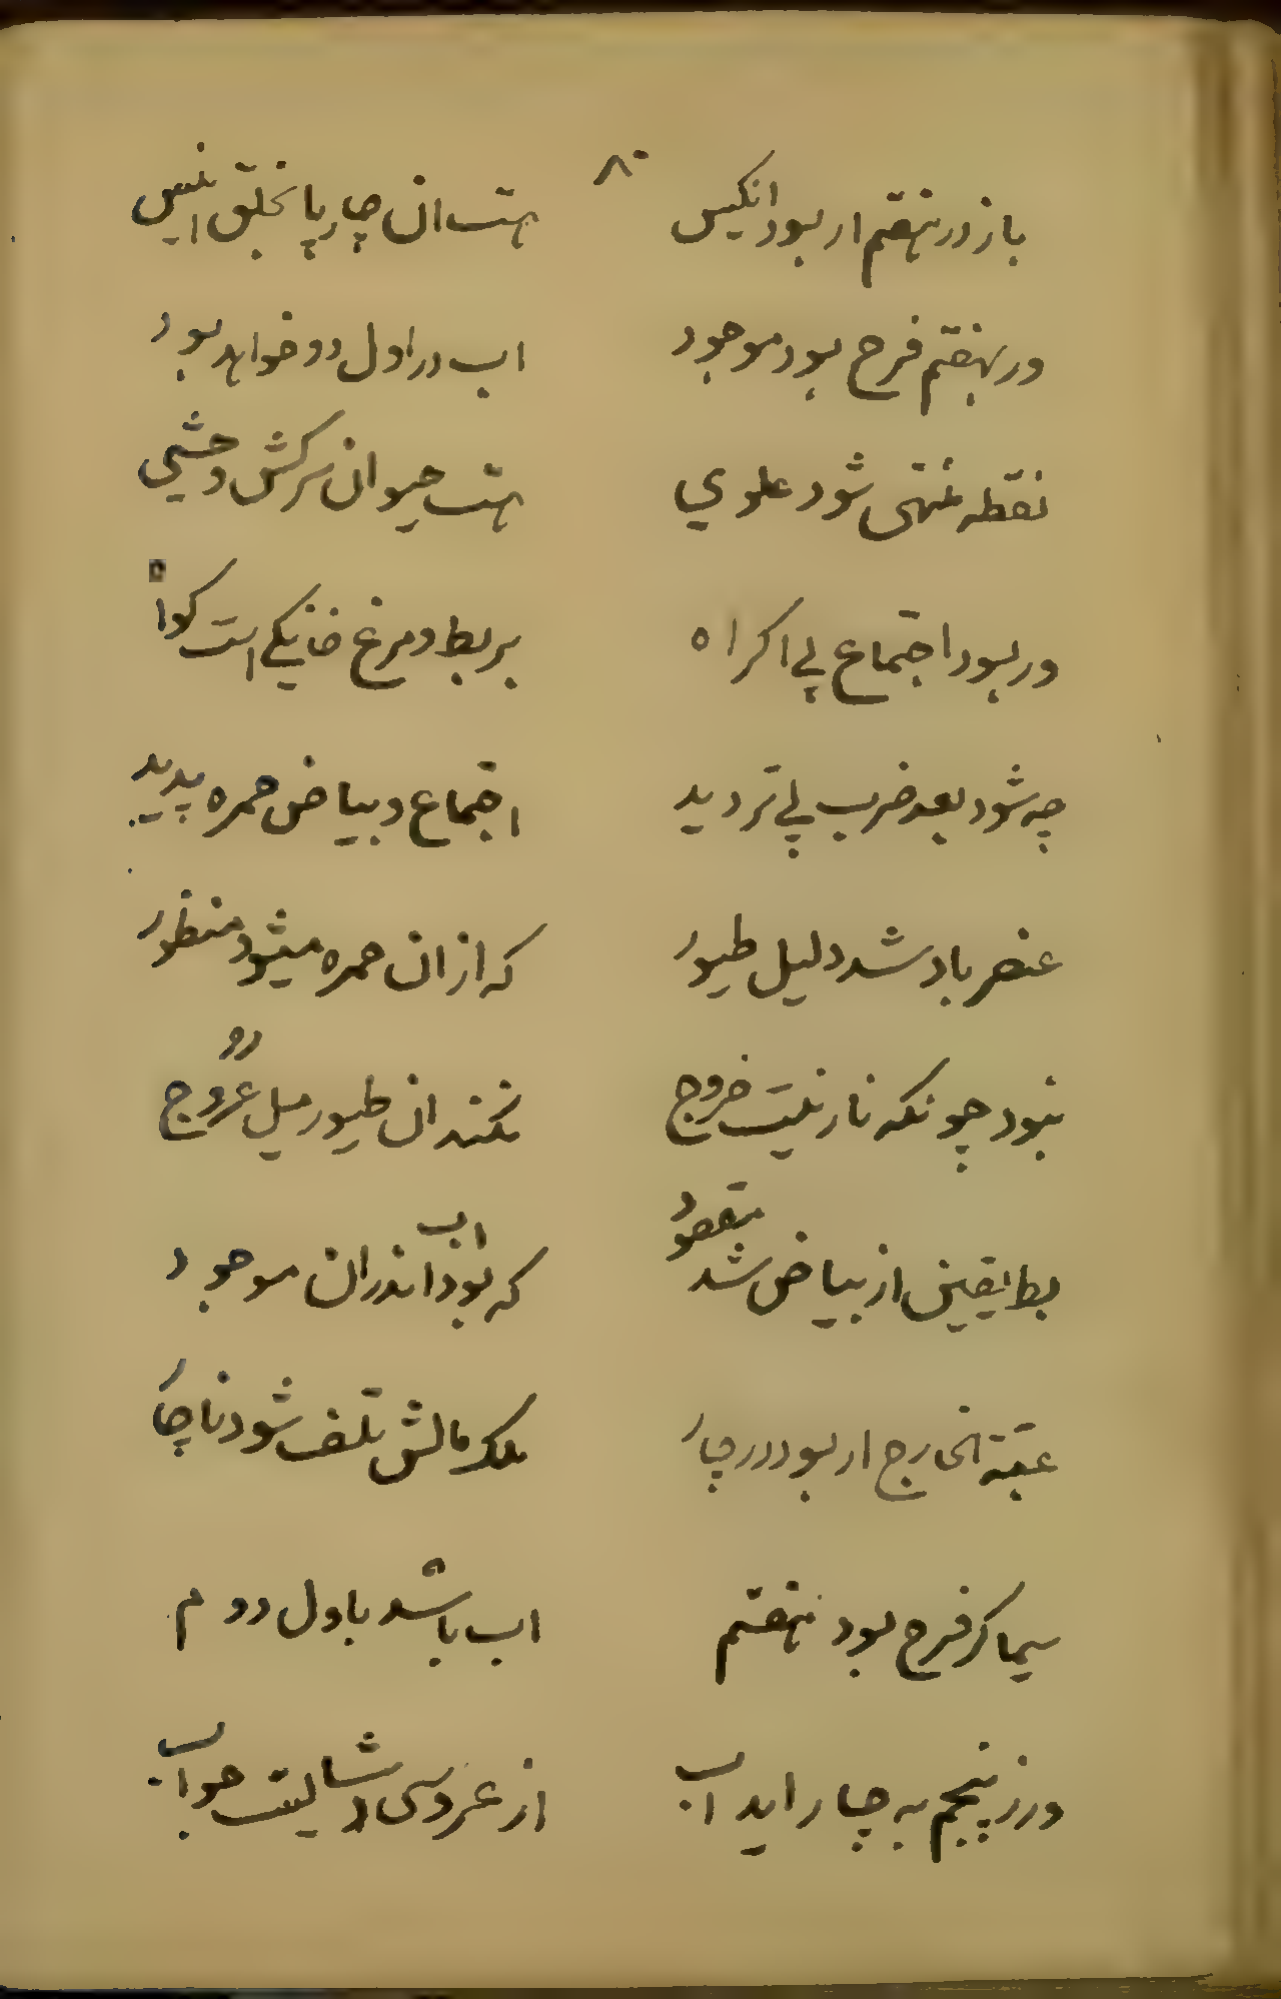 ۸۰
باز در نهم ار بود انکیس
هست ان چارپا بخلق انیس
ور بهفتم فرح بود موجود
اب در اول دو خواهد بود
نقطه منتهی شود علوي
هست حیوان سرکش وحشی
ور بود اجتماع بی اکراه
بر بط و مرغ خانگی است کواه
چه شود بعد ضرب بی تردید
اجتماع و بیاض حمره پدید
عنصر باد شد دلیل طیور
که از ان حمره میشود منظور
نبود چونکه نار نیست خروج
نکنند ان طیور میل عروج
بط یقین از بیاض شد مقصود
که بود اب اندران موجود
عتبة الخارج ار بود در چار
ملک مالش تلف شود ناچار
سیما کر فرح بود بهفتم
اب باشد باول دوم
ور ز پنجم به چار اید اب
از عروسی جواب